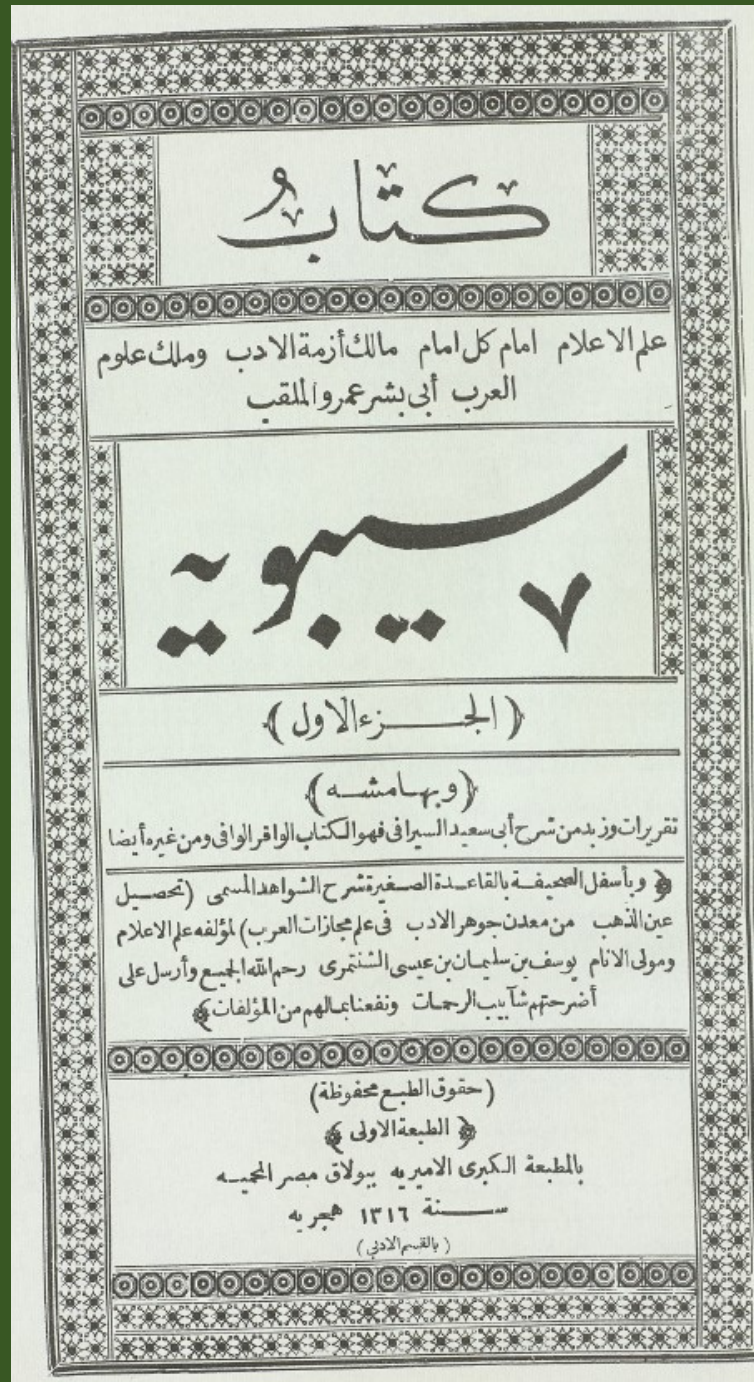 كتابُ
علم الاعلام امام كل امام مالك أزمة الادب وملك علوم
العرب أبى بشر عمرو الملقب
سيبويه
﴿الجزء الاول﴾
﴿وبهامشه﴾
تقريرات وزبد من شرح أبى سعيد السيرافى فهو الكتاب الوافر الوافى ومن غيره أيضا
﴿وبأسفل الصحيفة بالقاعدة الصغيرة شرح الشواهد المسمى (تحصيل
عين الذهب من معدن جوهر الادب فى علم مجازات العرب) لمؤلفه علم الاعلام
ومولى الانام يوسف بن سليمان بن عيسى الشنتمرى رحم الله الجميع وأرسل على
أضرحتهم شآبيب الرحمات ونفعنا بمالهم من المؤلفات﴾
(حقوق الطبع محفوظة)
﴿الطبعة الاولى﴾
بالمطبعة الكبرى الاميريه ببولاق مصر المحميه
سنة ١٣١٦ هجريه
(بالقسم الادبى)